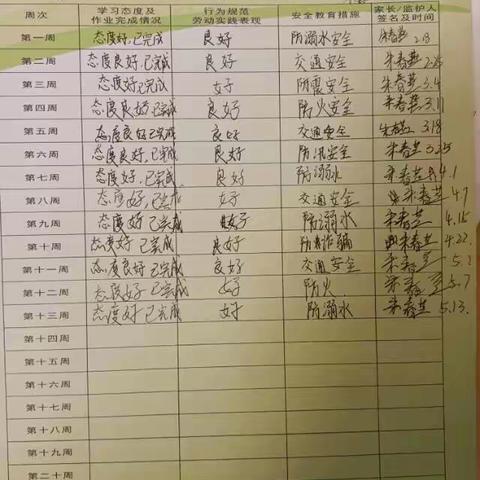 周次 学习态度及作业完成情况 行为规范劳动实践表现 安全教育措施 家长/监护人签名及时间
第一周 态度好.已完成 良好 防溺水安全 朱春燕 2.18
第二周 态度良好.已完成 良好 交通安全 朱春燕 2.25
第三周 态度好.已完成 好 防震安全 朱春燕 3.4
第四周 态度良好.已完成 良好 防火安全 朱春燕 3.11
第五周 态度良好.已完成 良好 交通安全 朱春燕 3.18
第六周 态度良好.已完成 良好 防汛安全 朱春燕 3.25
第七周 态度好.已完成 良好 防溺水 朱春燕 4.1
第八周 态度好.已完成 好 交通安全 朱春燕 4.7
第九周 态度好.已完成 好 防溺水 朱春燕 4.15
第十周 态度好.已完成 良好 防诈骗 朱春燕 4.22.
第十一周 态度良好.已完成 良好 交通安全 朱春燕 5.2
第十二周 态度好.已完成 好 防火 朱春燕 5.7
第十三周 态度好.已完成 好 防溺水 朱春燕 5.13.
第十四周
第十五周
第十六周
第十七周
第十八周
第十九周
第二十周